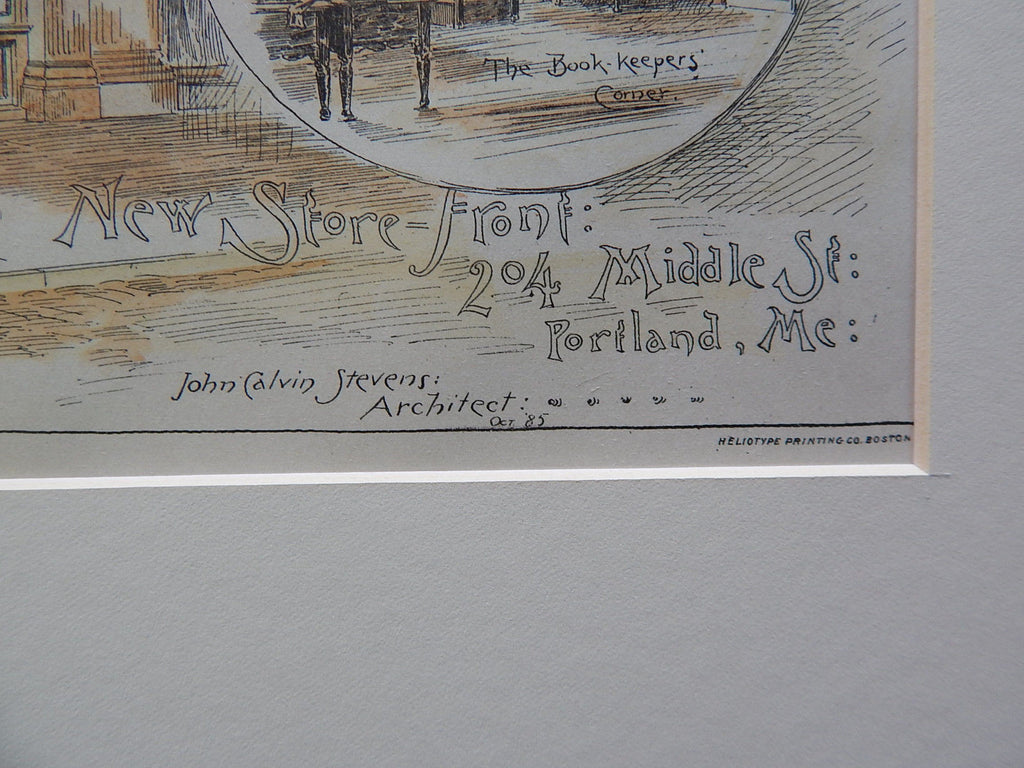 The Book-keepers'
Corner.
New Store-Front:
204 Middle St:
Portland, Me:
John Calvin Stevens:
Architect:
Oct '85
HELIOTYPE PRINTING CO. BOSTON